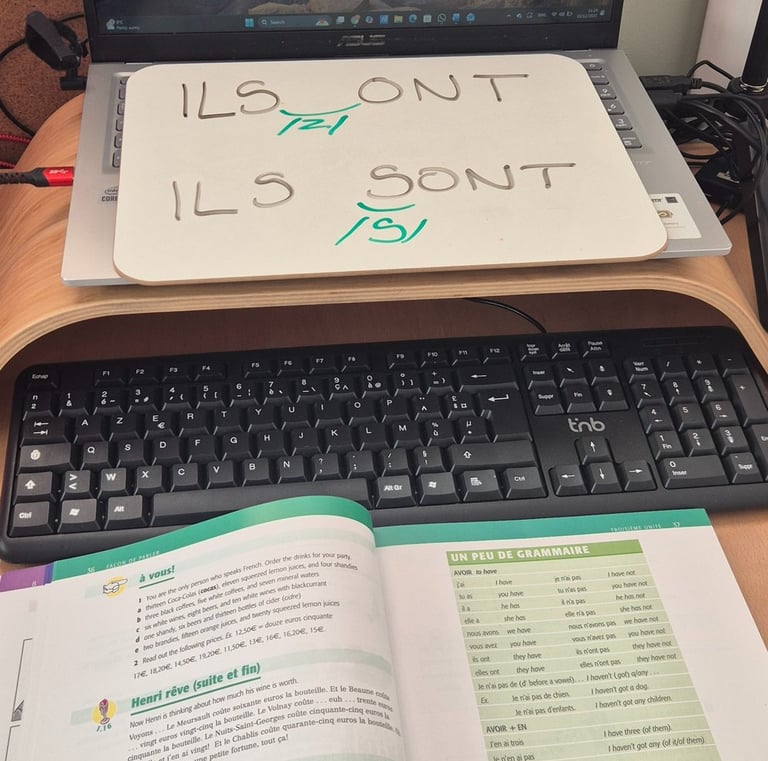 Search
ASUS
ILS ONT
/z/
ILS SONT
/s/
Echap F1 F2 F3 F4 F5 F6 F7 F8 F9 F10 F11 F12
A Z E R T Y U I O P
Q S D F G H J K L M
W X C V B N
Ctrl Alt Alt Gr Ctrl
Inser
Suppr Fin
Verr Num
7 8 9
4 5 6
1 Fin 2 3
0 Inser Suppr
tnb
36 FAÇON DE PARLER
à vous!
1 You are the only person who speaks French. Order the drinks for your party.
a thirteen Coca-Colas (cocas), eleven squeezed lemon juices, and four shandies
b three black coffees, five white coffees, and seven mineral waters
c six white wines, eight beers, and ten white wines with blackcurrant
d one shandy, six beers and thirteen bottles of cider (cidre)
e two brandies, fifteen orange juices, and twenty squeezed lemon juices
2 Read out the following prices. Ex. 12,50€ = douze euros cinquante
17€, 18,20€, 14,50€, 19,20€, 11,50€, 13€, 16€, 16,20€, 15€.
Henri rêve (suite et fin)
Now Henri is thinking about how much his wine is worth.
Voyons ... Le Meursault coûte soixante euros la bouteille. Et le Beaune coûte
... vingt euros vingt-cinq la bouteille. Le Volnay coûte ... euh ... trente euros
cinquante la bouteille. Le Nuits-Saint-Georges coûte cinquante-cinq euros la
et j'en ai vingt! Et le Chablis coûte quarante-cinq euros la bouteille.
une petite fortune, tout ça!
TROISIÈME UNITÉ 37
UN PEU DE GRAMMAIRE
AVOIR to have
j'ai I have je n'ai pas I have not
tu as you have tu n'as pas you have not
il a he has il n'a pas he has not
elle a she has elle n'a pas she has not
nous avons we have nous n'avons pas we have not
vous avez you have vous n'avez pas you have not
ils ont they have ils n'ont pas they have not
elles ont they have elles n'ont pas they have not
Je n'ai pas de (d' before a vowel)... I haven't (got) a/any ...
Ex. Je n'ai pas de chien. I haven't got a dog.
Je n'ai pas d'enfants. I haven't got any children.
AVOIR + EN
J'en ai trois I have three (of them).
Je n'en ai pas I haven't got any (of it/of them).